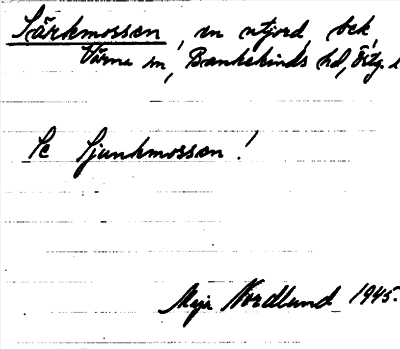 Särkmossen, en utjord, bek
Värna sn, Bankekinds hd, Östg. l
Se Sjunkmossen!
Maja Nordlund 1945.